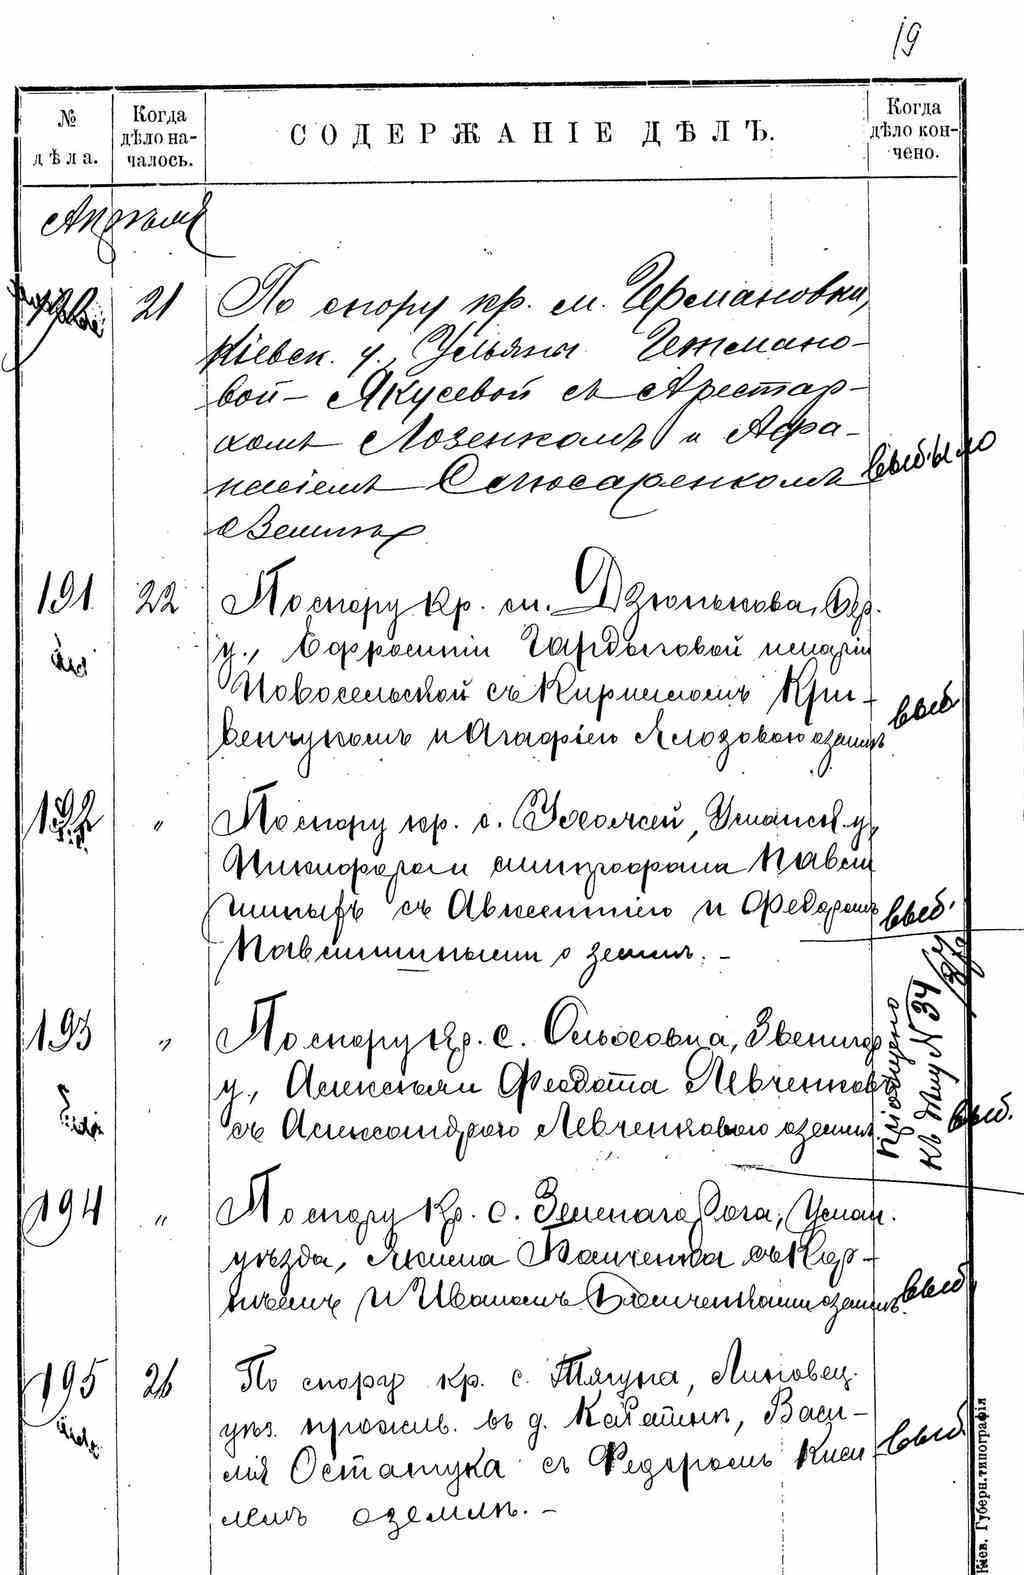 19
№ дѣла.
Когда дѣло началось.
СОДЕРЖАНІЕ ДѢЛЪ.
Когда дѣло кончено.
Апрѣля
21
По спору кр. м. Германовки,
Кіевск. у., Ульяны
вой - Якусевой съ Арестар-
хомъ Лозенкомъ и Афа-
насіемъ Слюсаренкомъ
о землѣ
выбыло
191
22
По спору кр. м. Дзюнькова, Бер.
у., Ефросиніи
Новосельской съ Кирилломъ Кри-
венчукомъ и Агафіею Ялозовою о землѣ
выб
192
"
По спору кр. с. Уманск. у.,
Никифора и Павли
шиныхъ съ Авксентіемъ и Федоромъ
Павлишиными о землѣ. -
выб.
193
"
По спору кр. с. Ольховца, Звенигор
у., Алексѣя и Феодота Левченковъ
съ Александрою Левченковою о землѣ.
къ дѣлу № 34
выб.
194
"
По спору кр. с. Зеленаго Рога, Уман.
уѣзда, Якима съ Кор-
нѣемъ и Иваномъ о землѣ.
выб
195
26
По спору кр. с. Тягуна, Липовец.
уѣз. прожив. въ д. Васи-
лія Остапука съ Федоромъ Кисе
лемъ о землѣ. -
выб.
Кіев. Губерн. типографія